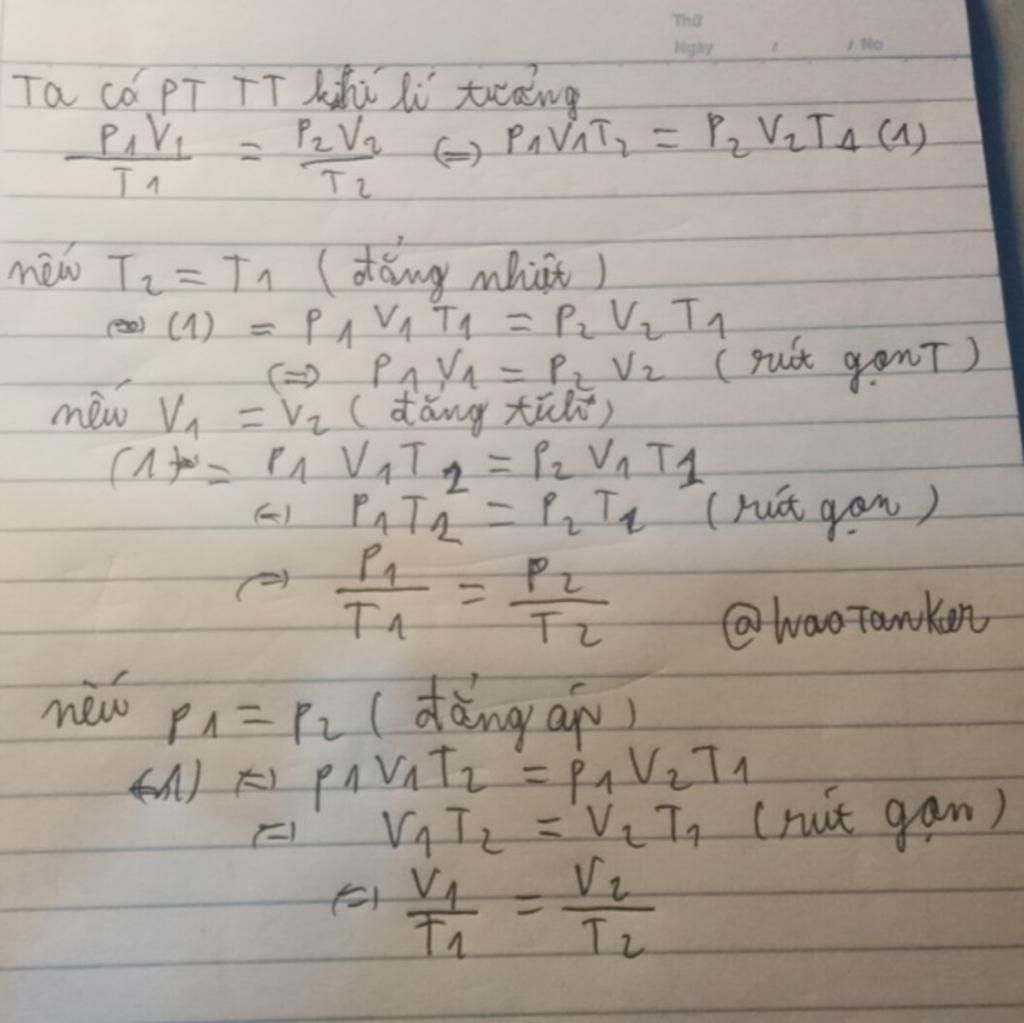 Thứ
Ngày / / No
Ta có PT TT khí lí tưởng
P1V1/T1 = P2V2/T2 (=) P1V1T2 = P2V2T1 (1)
nếu T2 = T1 (đẳng nhiệt)
(=) (1) = P1V1T1 = P2V2T1
(=) P1V1 = P2V2 (rút gọn T)
nếu V1 = V2 (đẳng tích)
(1) = P1V1T2 = P2V1T1
(=) P1T2 = P2T1 (rút gọn)
(=) P1/T1 = P2/T2
@haoTanker
nếu P1 = P2 (đẳng áp)
(1) (=) P1V1T2 = P1V2T1
(=) V1T2 = V2T1 (rút gọn)
(=) V1/T1 = V2/T2